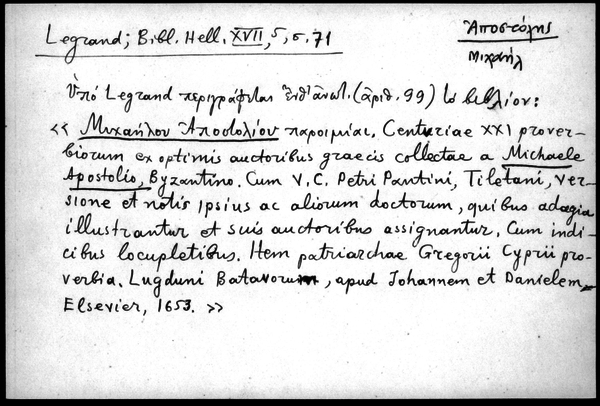 Legrand; Bibl. Hell. XVII, 5, σ. 71
Ἀποστόλης
Μιχαήλ
Ὑπὸ Legrand περιγράφεται ἐνθ' ἀνωτ. (ἀριθ. 99) τὸ βιβλίον:
« Μιχαήλου Ἀποστολίου παροιμίαι. Centuriae XXI prover-
biorum ex optimis auctoribus graecis collectae a Michaele
Apostolio, Byzantino. Cum V. C. Petri Pantini, Tiletani, ver-
sione et notis ipsius ac aliorum doctorum, quibus adagia
illustrantur et suis auctoribus assignantur. Cum indi-
cibus locupletibus. Item patriarchae Gregorii Cyprii pro-
verbia. Lugduni Batavorum, apud Johannem et Danielem
Elsevier, 1653. »